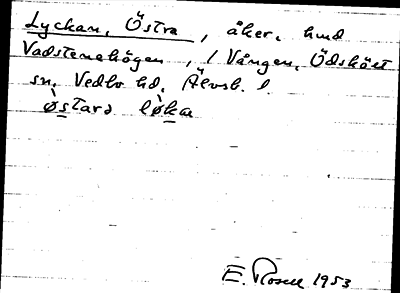 Lyckan, Östra, åker, hmd
Vadstenahögen, i Vången, Ödsköet
sn, Vedbo hd, Älvsb. l.
østara løka
E. Rosell 1953